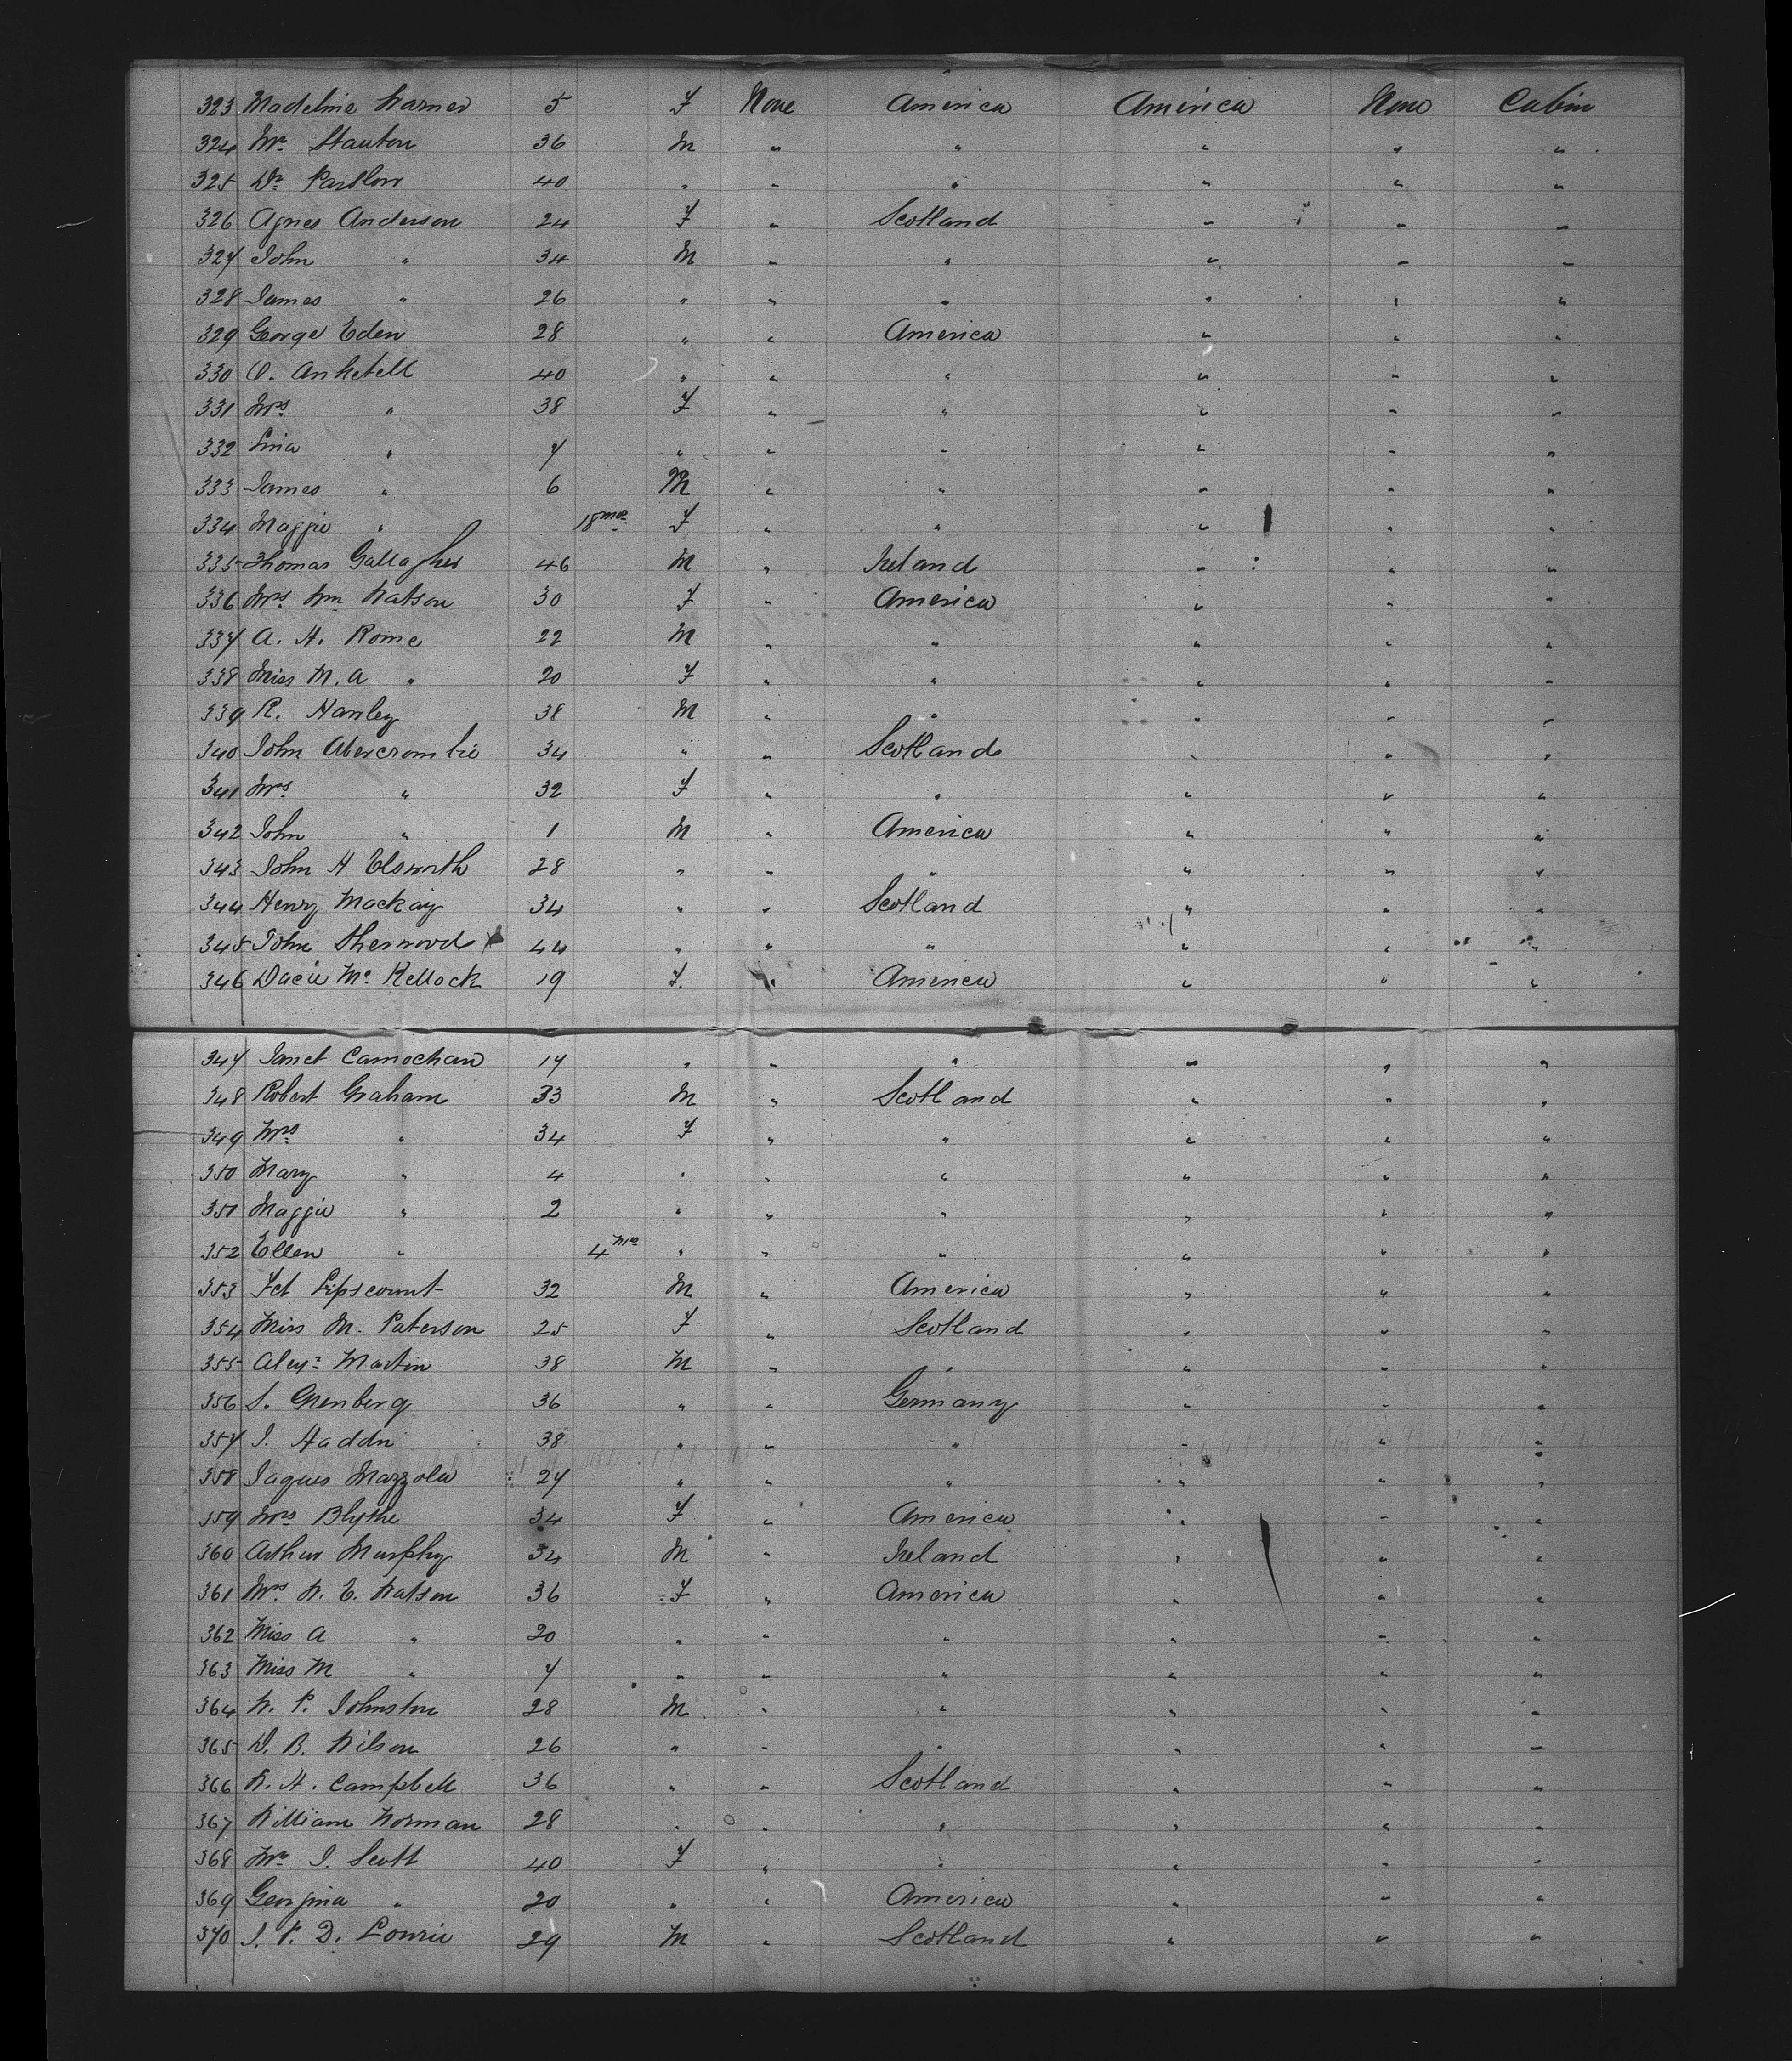 323 Madeline Warner 5 F None America America None Cabin
324 Mr. Stanton 36 M " " " " "
325 Dr. Partlow 40 " " " " " "
326 Agnes Anderson 24 F " Scotland " " "
327 John " 34 M " " " " "
328 James " 26 " " " " " "
329 George Eden 28 " " America " " "
330 O. Anketell 40 " " " " " "
331 Mrs. " 38 F " " " " "
332 Lina " 7 " " " " " "
333 James " 6 M " " " " "
334 Maggie " 18 mos F " " " " "
335 Thomas Gallagher 46 M " Ireland " " "
336 Mrs. Wm Watson 30 F " America " " "
337 A. H. Rome 22 M " " " " "
338 Miss M. A " 20 F " " " " "
339 R. Hanley 38 M " " " " "
340 John Abercrombie 34 " " Scotland " " "
341 Mrs. " 32 F " " " " "
342 John " 1 M " America " " "
343 John H Elsworth 28 " " " " " "
344 Henry Mackay 34 " " Scotland " " "
345 John Sherwood 44 " " " " " "
346 Dacie Mc Kellock 19 F. " America " " "
347 Janet Carnochan 17 " " " " " "
348 Robert Graham 33 M " Scotland " " "
349 Mrs " 34 F " " " " "
350 Mary " 4 " " " " " "
351 Maggie " 2 " " " " " "
352 Ellen " 4 mos " " " " " "
353 32 M " America " " "
354 Miss M. Paterson 25 F " Scotland " " "
355 Alexr. Martin 38 M " " " " "
356 S. Grenberg 36 " " Germany " " "
357 J. 38 " " " " " "
358 Jaques Mazzola 27 " " " " " "
359 Mrs Blythe 34 F " America " " "
360 Arthur Murphy 34 M " Ireland " " "
361 Mrs. W. E. Watson 36 F " America " " "
362 Miss A " 20 " " " " " "
363 Miss M " 7 " " " " " "
364 W. P. Johnston 28 M " " " " "
365 D. B. Wilson 26 " " " " " "
366 W. H. Campbell 36 " " Scotland " " "
367 William Worman 28 " " " " " "
368 Mrs J. Scott 40 F " " " " "
369 Georgina " 20 " " America " " "
370 J. P. D. Lowrie 29 M " Scotland " " "